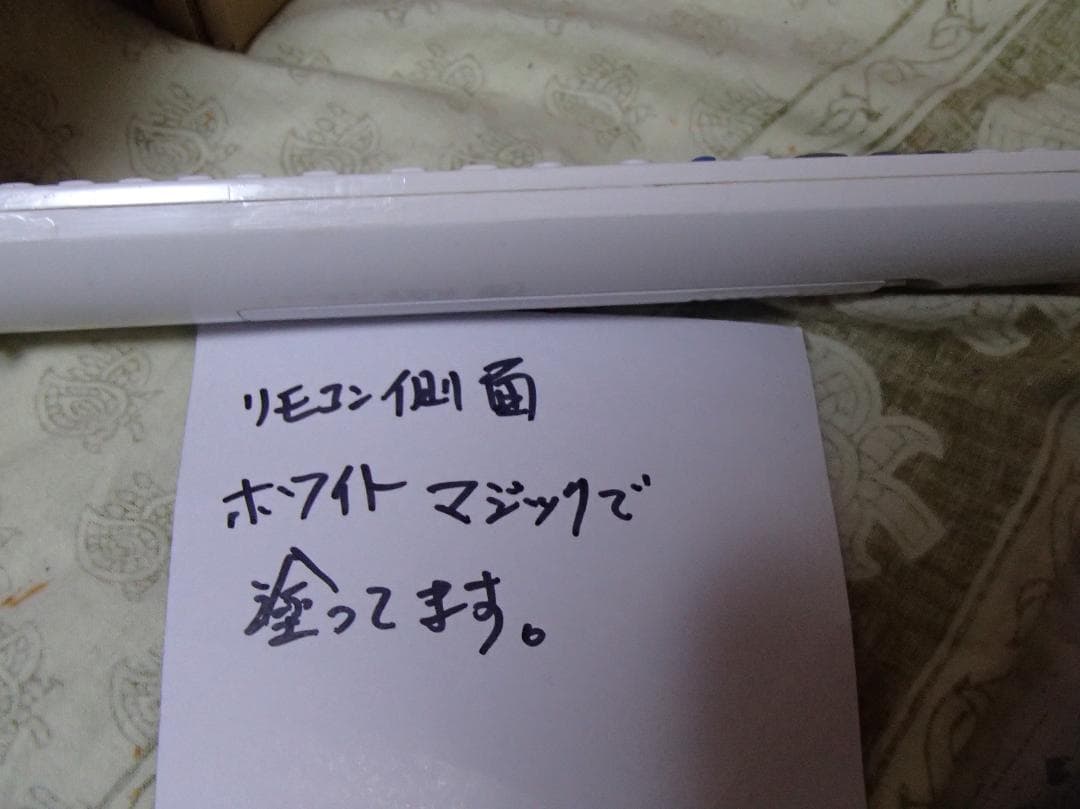 リモコン側面
ホワイトマジックで
塗ってます。